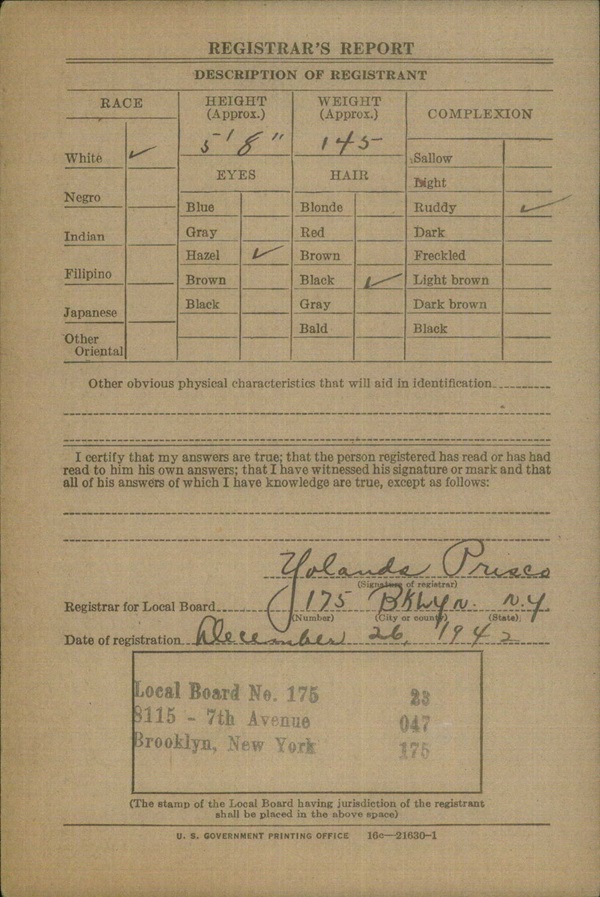 REGISTRAR'S REPORT
DESCRIPTION OF REGISTRANT
RACE
HEIGHT (Approx.)
WEIGHT (Approx.)
COMPLEXION
5' 8"
145
White ✓
Negro
Indian
Filipino
Japanese
Other Oriental
EYES
Blue
Gray
Hazel ✓
Brown
Black
HAIR
Blonde
Red
Brown
Black ✓
Gray
Bald
Sallow
Light
Ruddy ✓
Dark
Freckled
Light brown
Dark brown
Black
Other obvious physical characteristics that will aid in identification
I certify that my answers are true; that the person registered has read or has had
read to him his own answers; that I have witnessed his signature or mark and that
all of his answers of which I have knowledge are true, except as follows:
Yolanda Prisco
(Signature of registrar)
Registrar for Local Board 175 BKLyn. N.Y
(Number) (City or county) (State)
Date of registration December 26, 1942
Local Board No. 175 23
8115 - 7th Avenue 047
Brooklyn, New York 175
(The stamp of the Local Board having jurisdiction of the registrant
shall be placed in the above space)
U. S. GOVERNMENT PRINTING OFFICE 16c—21630-1